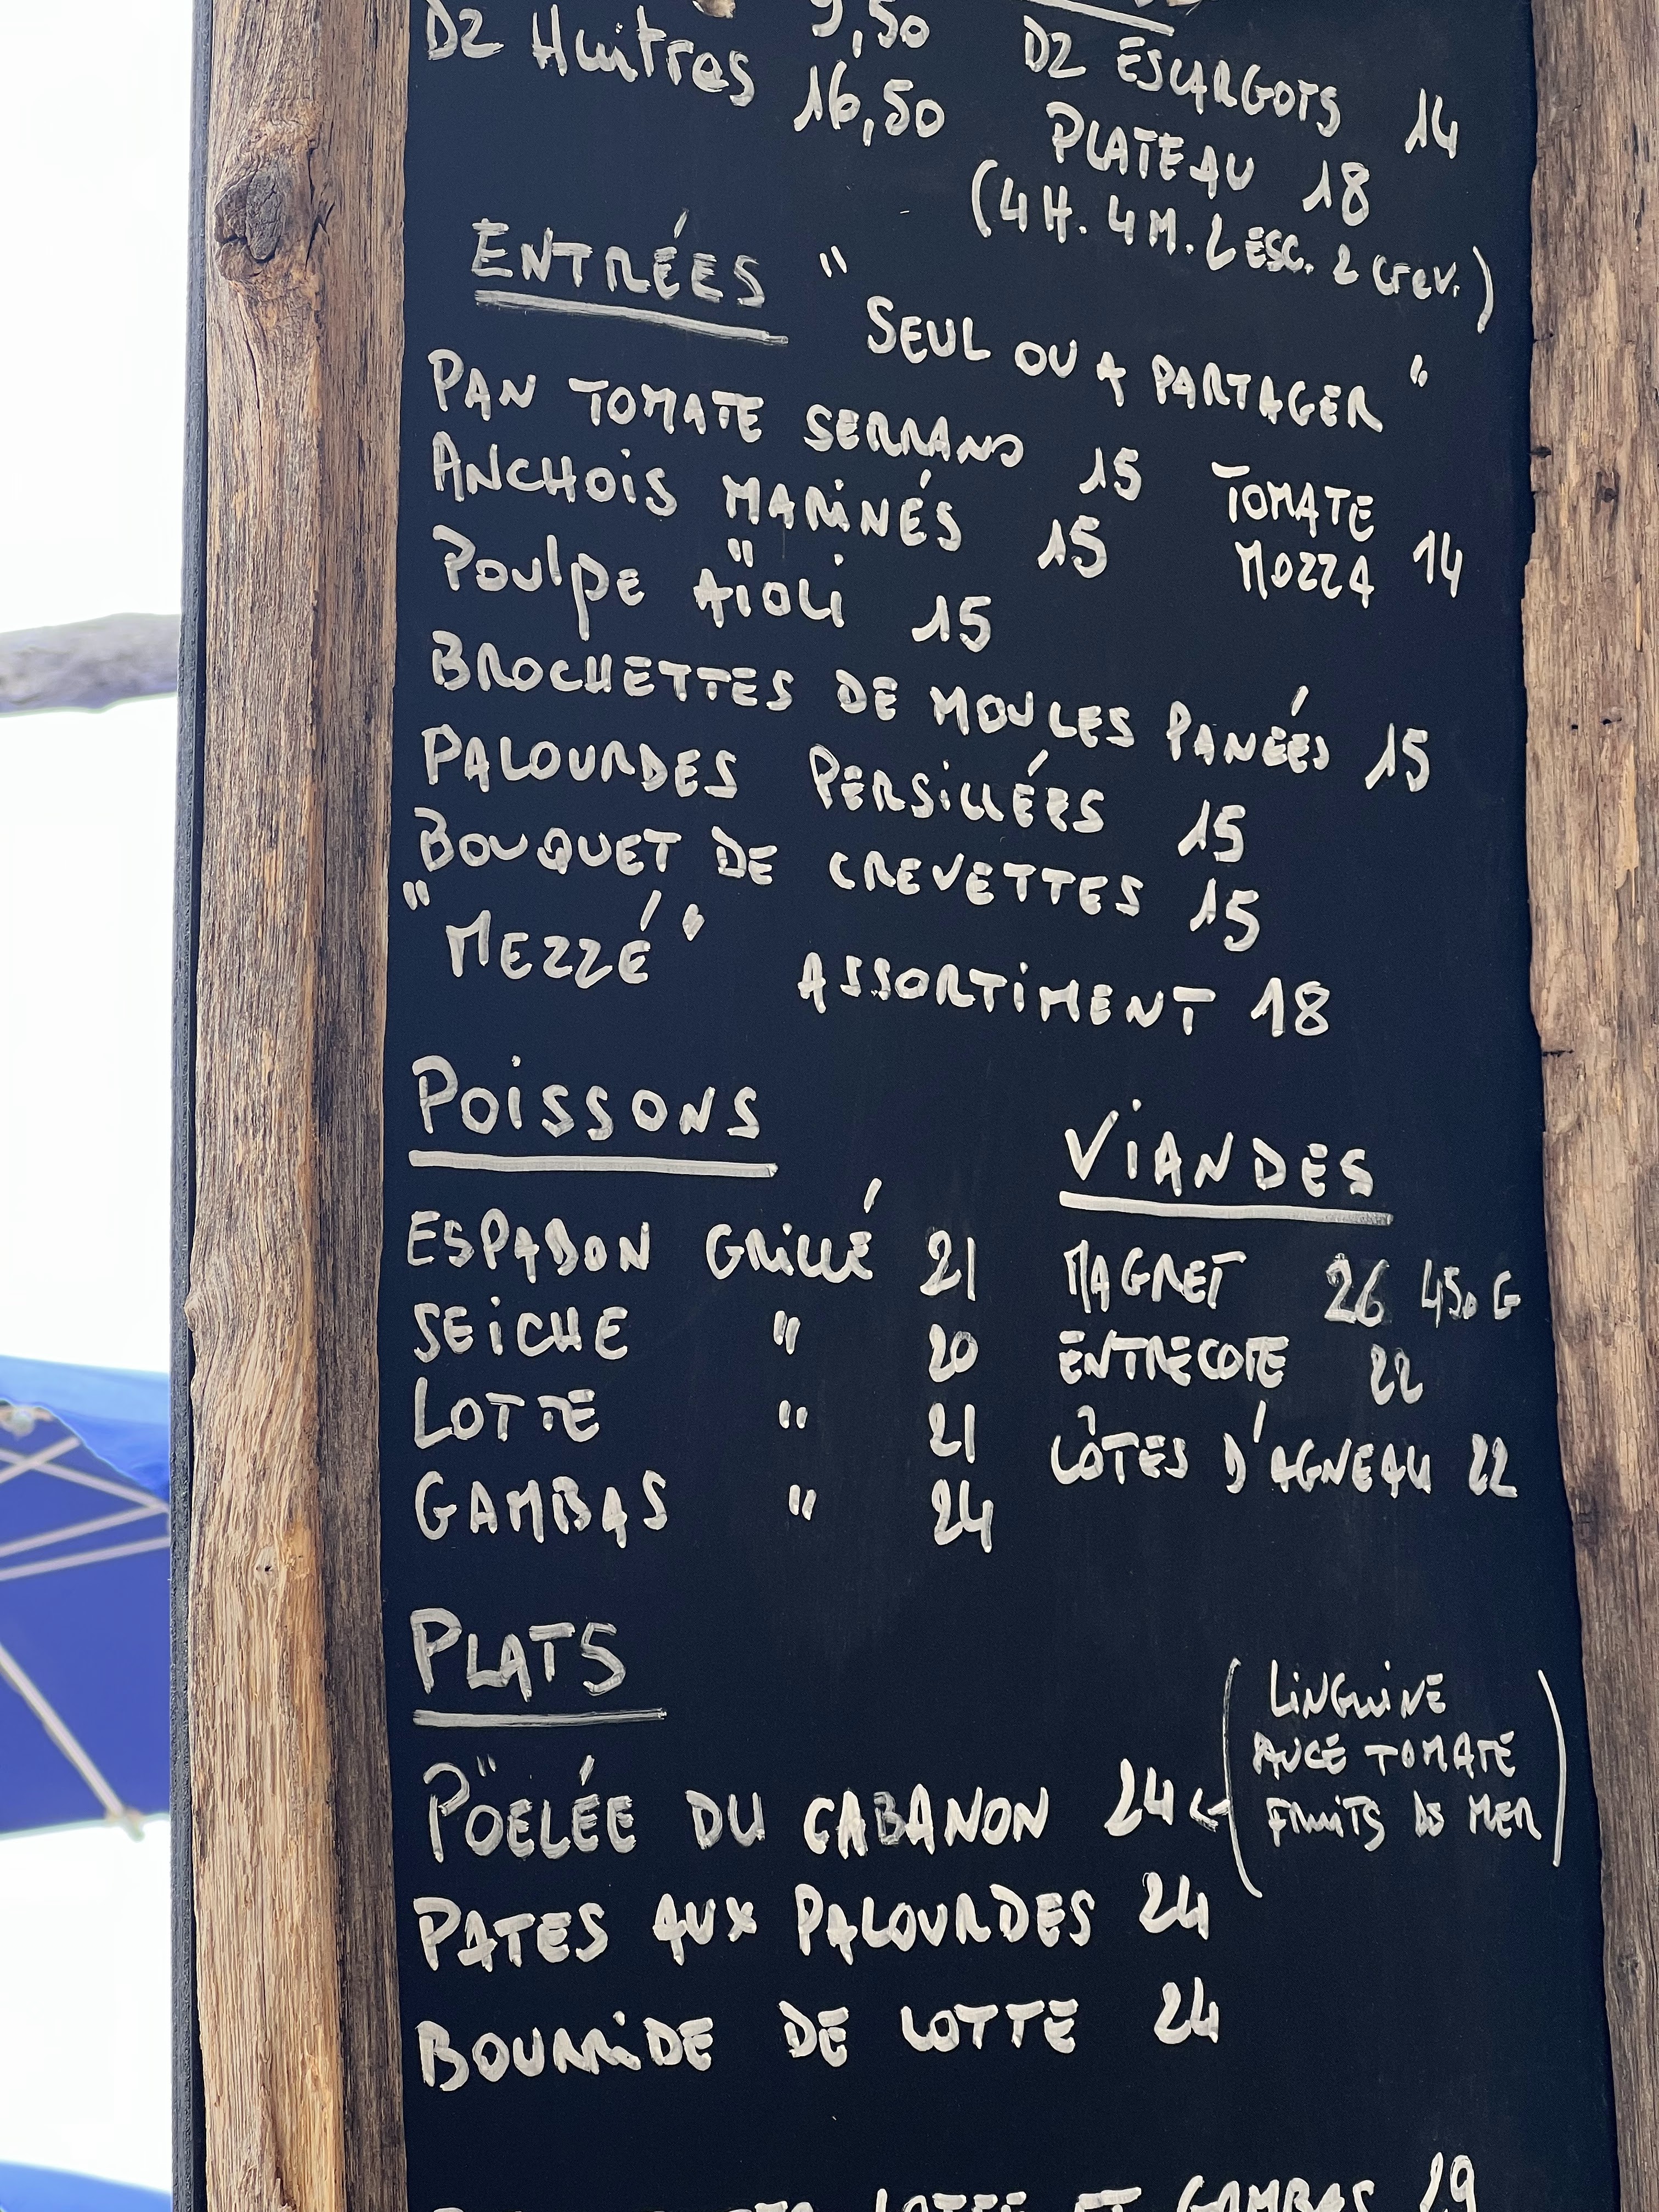 9,50
DZ Huitres 16,50
DZ ESCARGOTS 14
PLATEAU 18
(4H. 4M. 2 ESC. 2 Crev.)
ENTRÉES " SEUL OU A PARTAGER "
PAN TOMATE SERRANO 15
ANCHOIS MARINÉS 15
TOMATE
MOZZA 14
POULPE AÏOLI 15
BROCHETTES DE MOULES PANÉES 15
PALOURDES PERSILLÉES 15
BOUQUET DE CREVETTES 15
"MEZZÉ" ASSORTIMENT 18
POISSONS
ESPADON GRILLÉ 21
SEICHE " 20
LOTTE " 21
GAMBAS " 24
VIANDES
MAGRET 26 450 G
ENTRECOTE 22
CÔTES D'AGNEAU 22
PLATS
PÖELÉE DU CABANON 24
(LINGUINE
TOMATE
FRUITS DE MER)
PATES AUX PALOURDES 24
BOURRIDE DE LOTTE 24
LOTTE ET GAMBAS 29